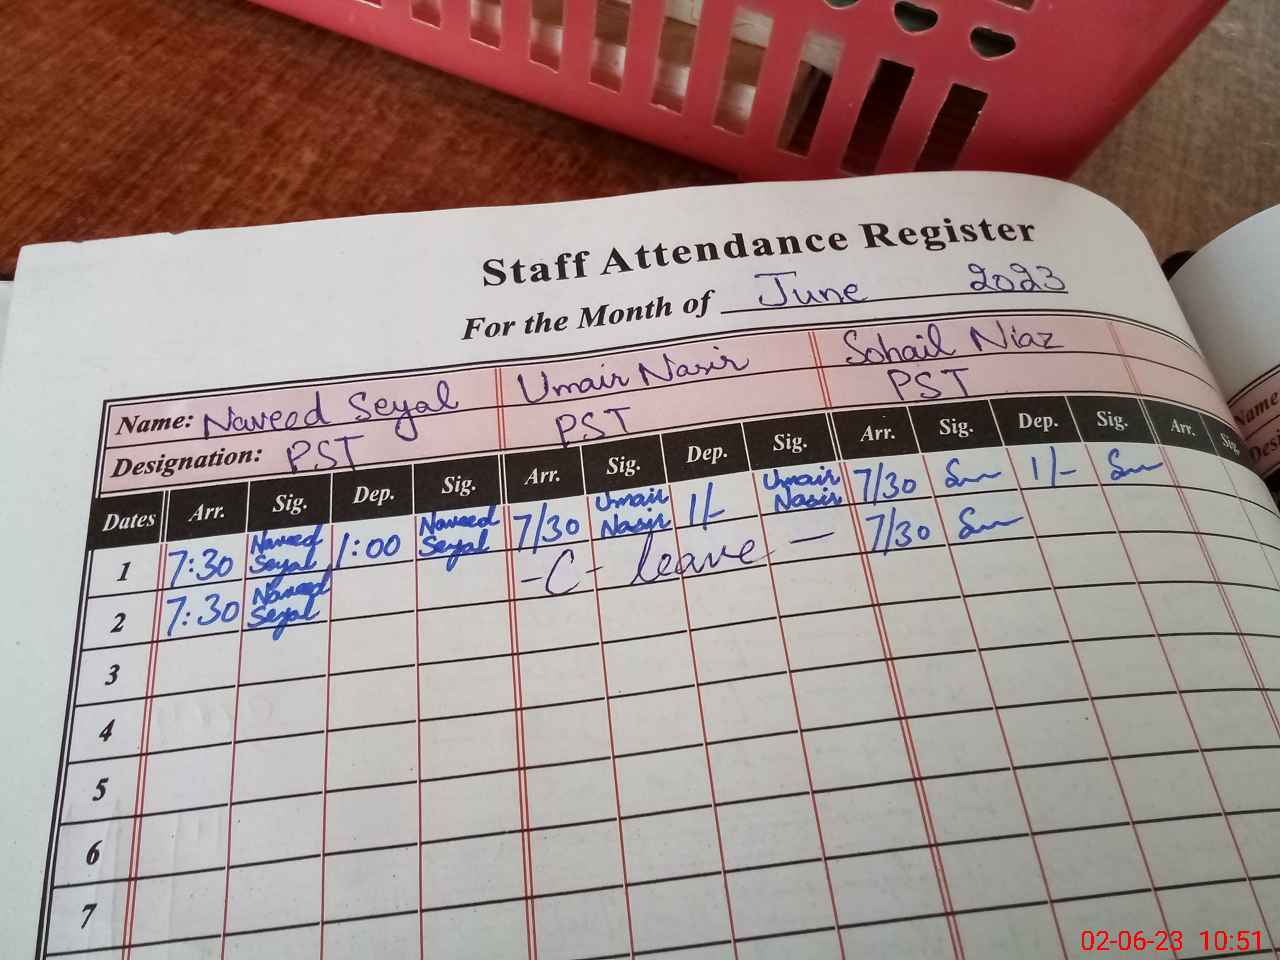 Staff Attendance Register
For the Month of June 2023
Name: Naveed Seyal Umair Nasir Sohail Niaz
Designation: PST PST PST
Dates Arr. Sig. Dep. Sig. Arr. Sig. Dep. Sig. Arr. Sig. Dep. Sig. Arr. Sig.
1 7:30 Naveed Seyal 1:00 Naveed Seyal 7/30 Umair Nasir 1/- Umair Nasir 7/30 1/-
2 7:30 Naveed Seyal -C- leave — 7/30
3
4
5
6
7
Name
02-06-23 10:51